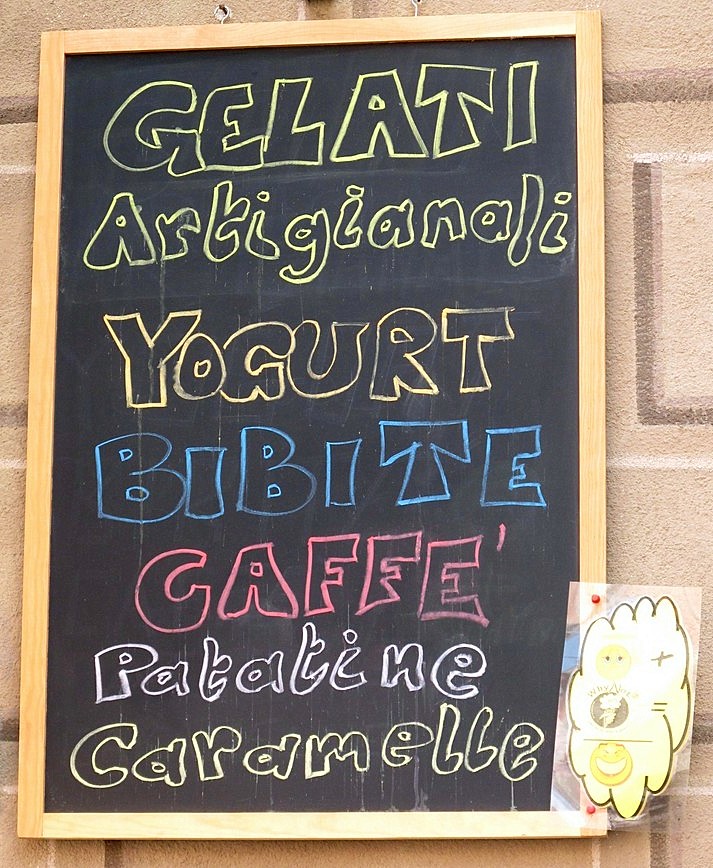 GELATI
Artigianali
YOGURT
BIBITE
CAFFE'
Patatine
Caramelle
+
=